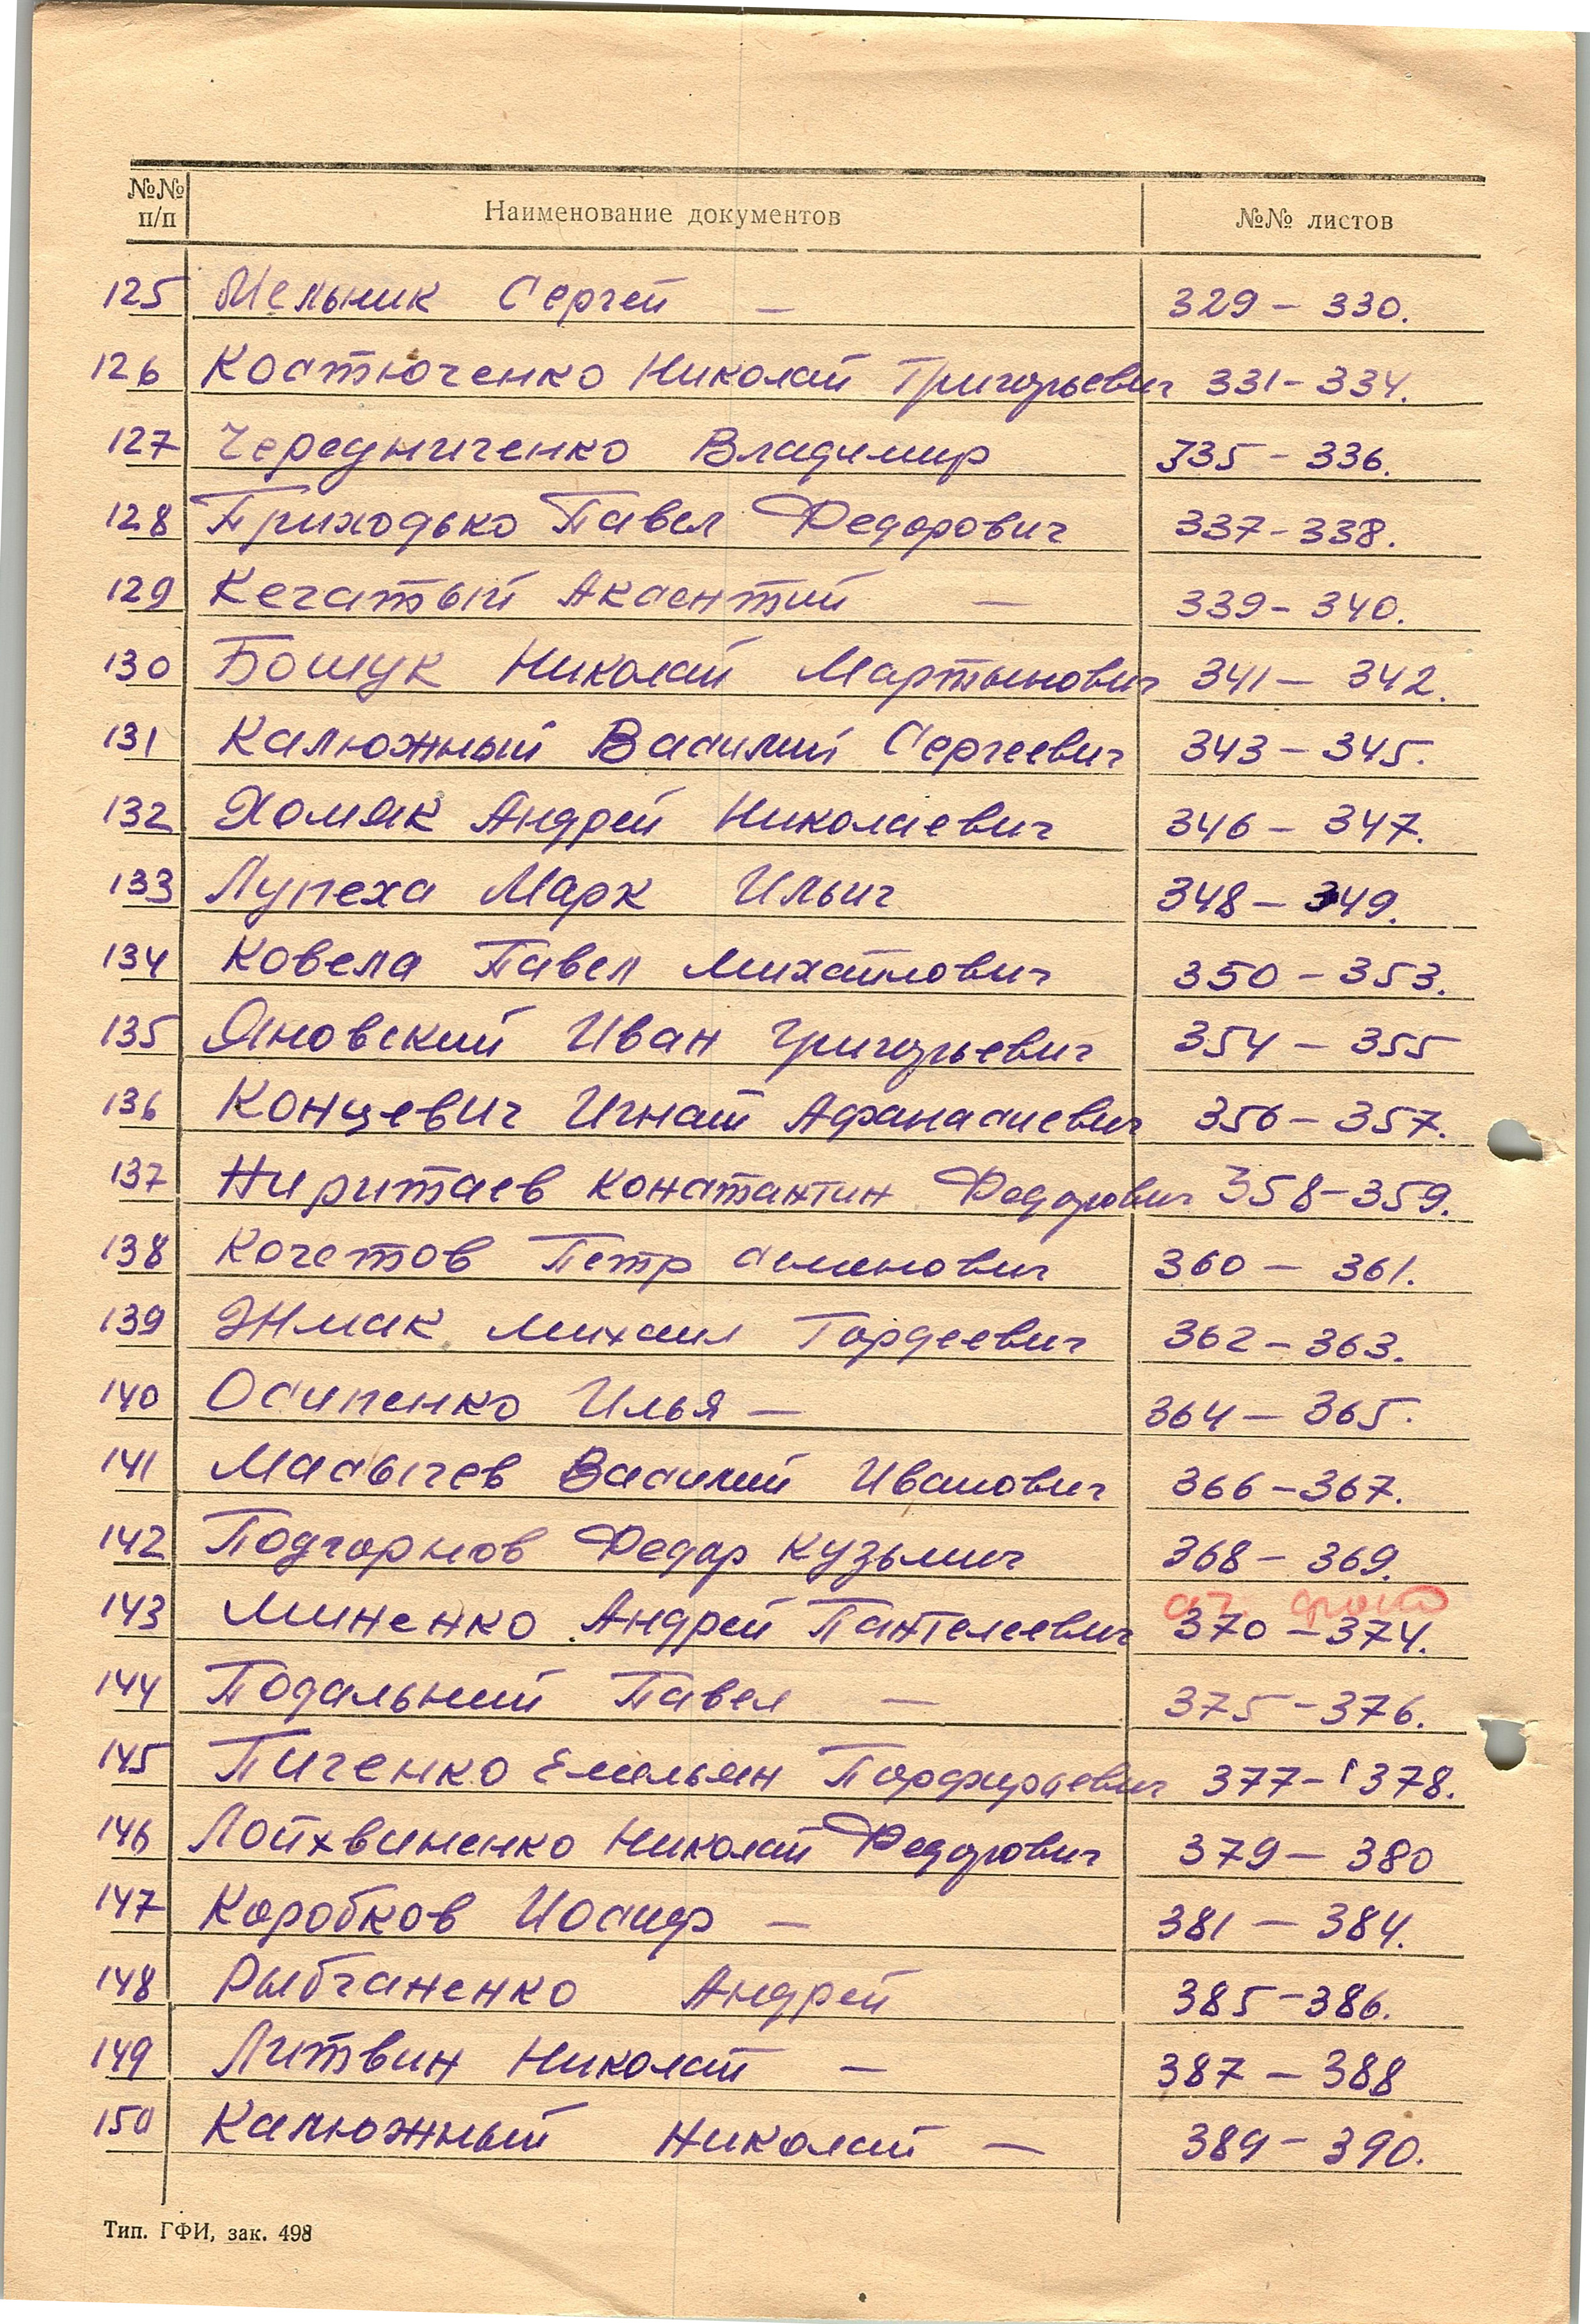 №№ п/п Наименование документов №№ листов
125 Мельник Сергей — 329 – 330.
126 Костюченко Николай Григорьевич 331 – 334.
127 Чередниченко Владимир 335 – 336.
128 Приходько Павел Федорович 337 – 338.
129 Кечатый Аксентий — 339 – 340.
130 Бошук Николай Мартынович 341 – 342.
131 Калюжный Василий Сергеевич 343 – 345.
132 Хомяк Андрей Николаевич 346 – 347.
133 Лупеха Марк Ильич 348 – 349.
134 Ковела Павел Михайлович 350 – 353.
135 Яновский Иван Григорьевич 354 – 355
136 Концевич Игнат Афанасиевич 356 – 357.
137 Ниритаев Константин Федорович 358 – 359.
138 Кочетов Петр Семенович 360 – 361.
139 Энмак Михаил Гордеевич 362 – 363.
140 Осипенко Илья — 364 – 365.
141 Масычев Василий Иванович 366 – 367.
142 Подгорнов Федор Кузьмич 368 – 369.
фото
143 Миненко Андрей Пантелеевич 370 – 374.
144 Подальний Павел — 375 – 376.
145 Пиченко Емельян Порфирьевич 377 – 378.
146 Лойхвиненко Николай Федорович 379 – 380
147 Коробков Иосиф — 381 – 384.
148 Рыбчаненко Андрей 385 – 386.
149 Литвин Николай — 387 – 388
150 Калюжный Николай — 389 – 390.
Тип. ГФИ, зак. 498